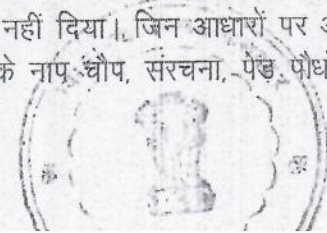 नहीं दिया। जिन आधारों पर
के नाप चौप, संरचना, पेड़ पौध